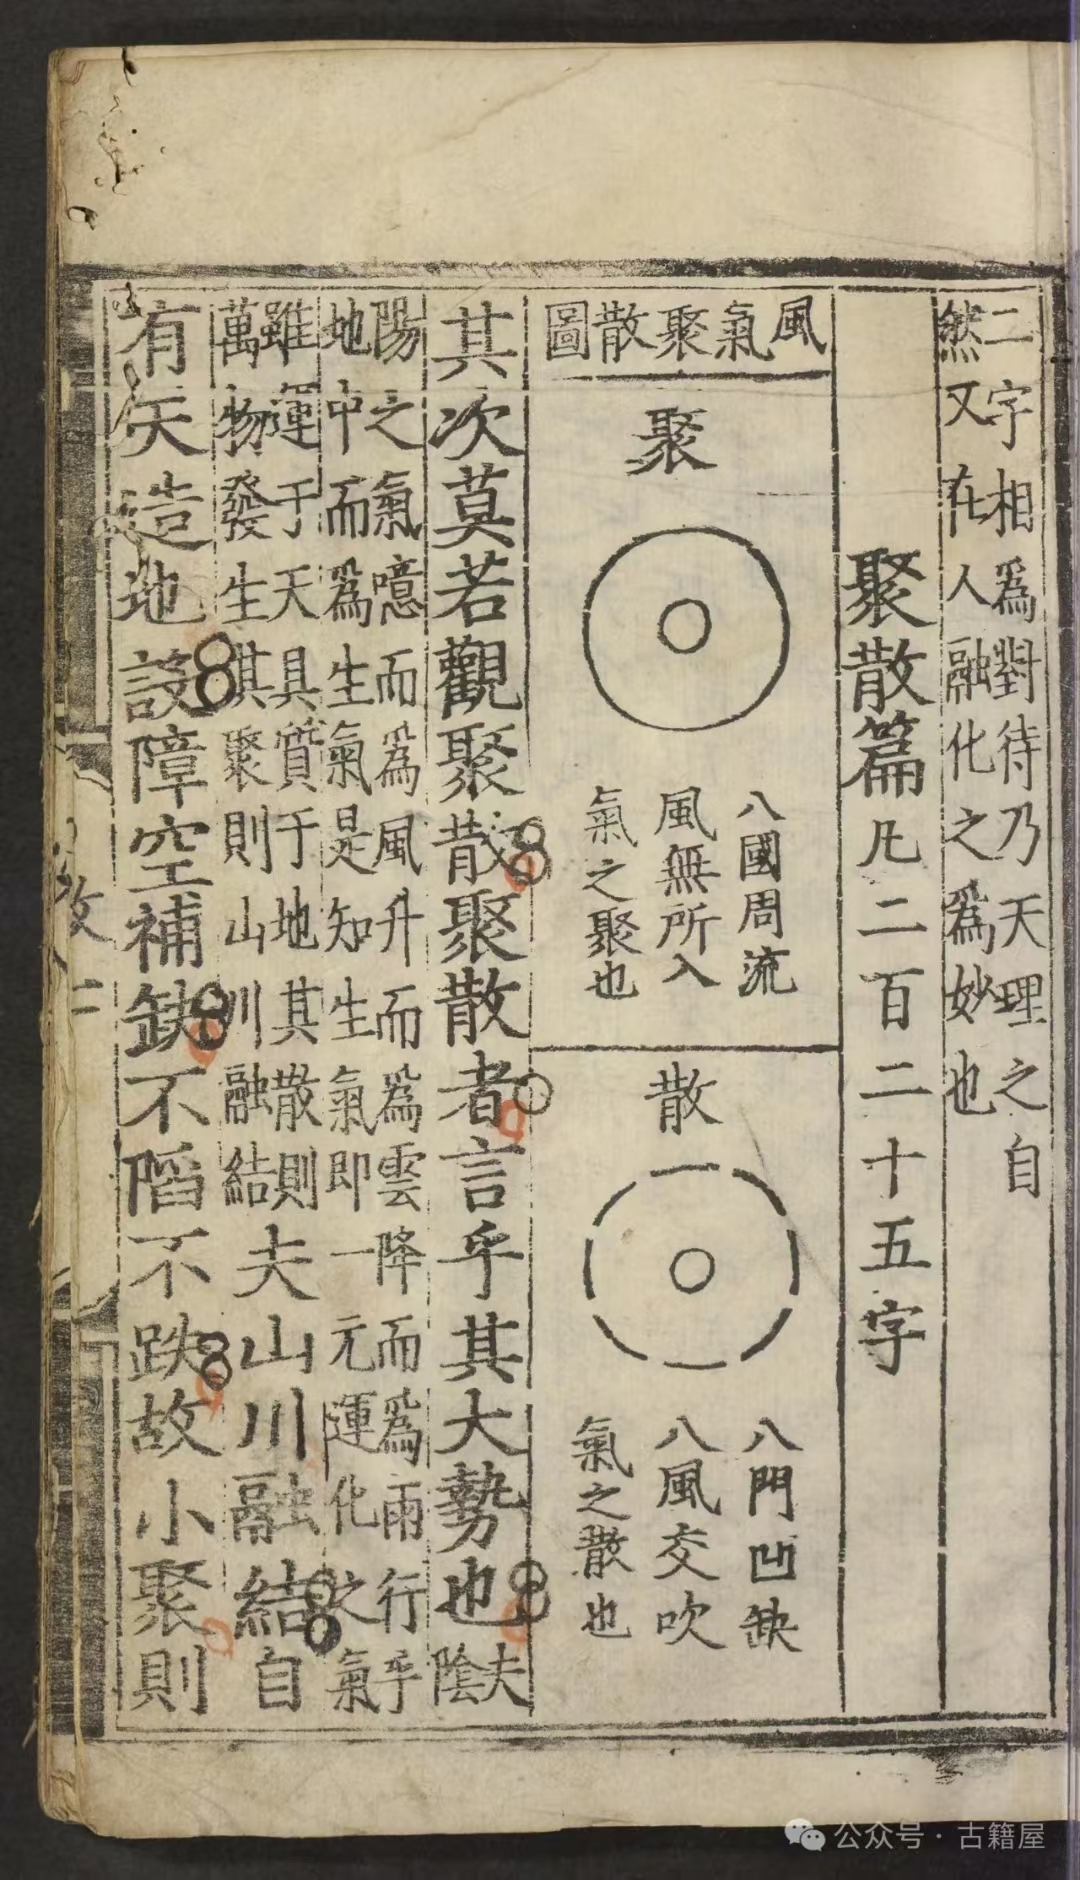 二字相爲對待乃天理之自
然又在人融化之爲妙也
聚散篇凡二百二十五字
風氣聚散圖
聚
八國周流
風無所入
氣之聚也
散
八門凹缺
八風交吹
氣之散也
其次莫若觀聚散聚散者言乎其大勢也夫
陰
陽之氣噫而爲風升而爲雲降而爲雨行乎
地中而爲生氣是知生氣即一元運化之氣
雖運于天具質于地其散則
萬物發生其聚則山川融結
夫山川融結自
有天造地設障空補缺不䧟不跌故小聚則
二
公众号·古籍屋